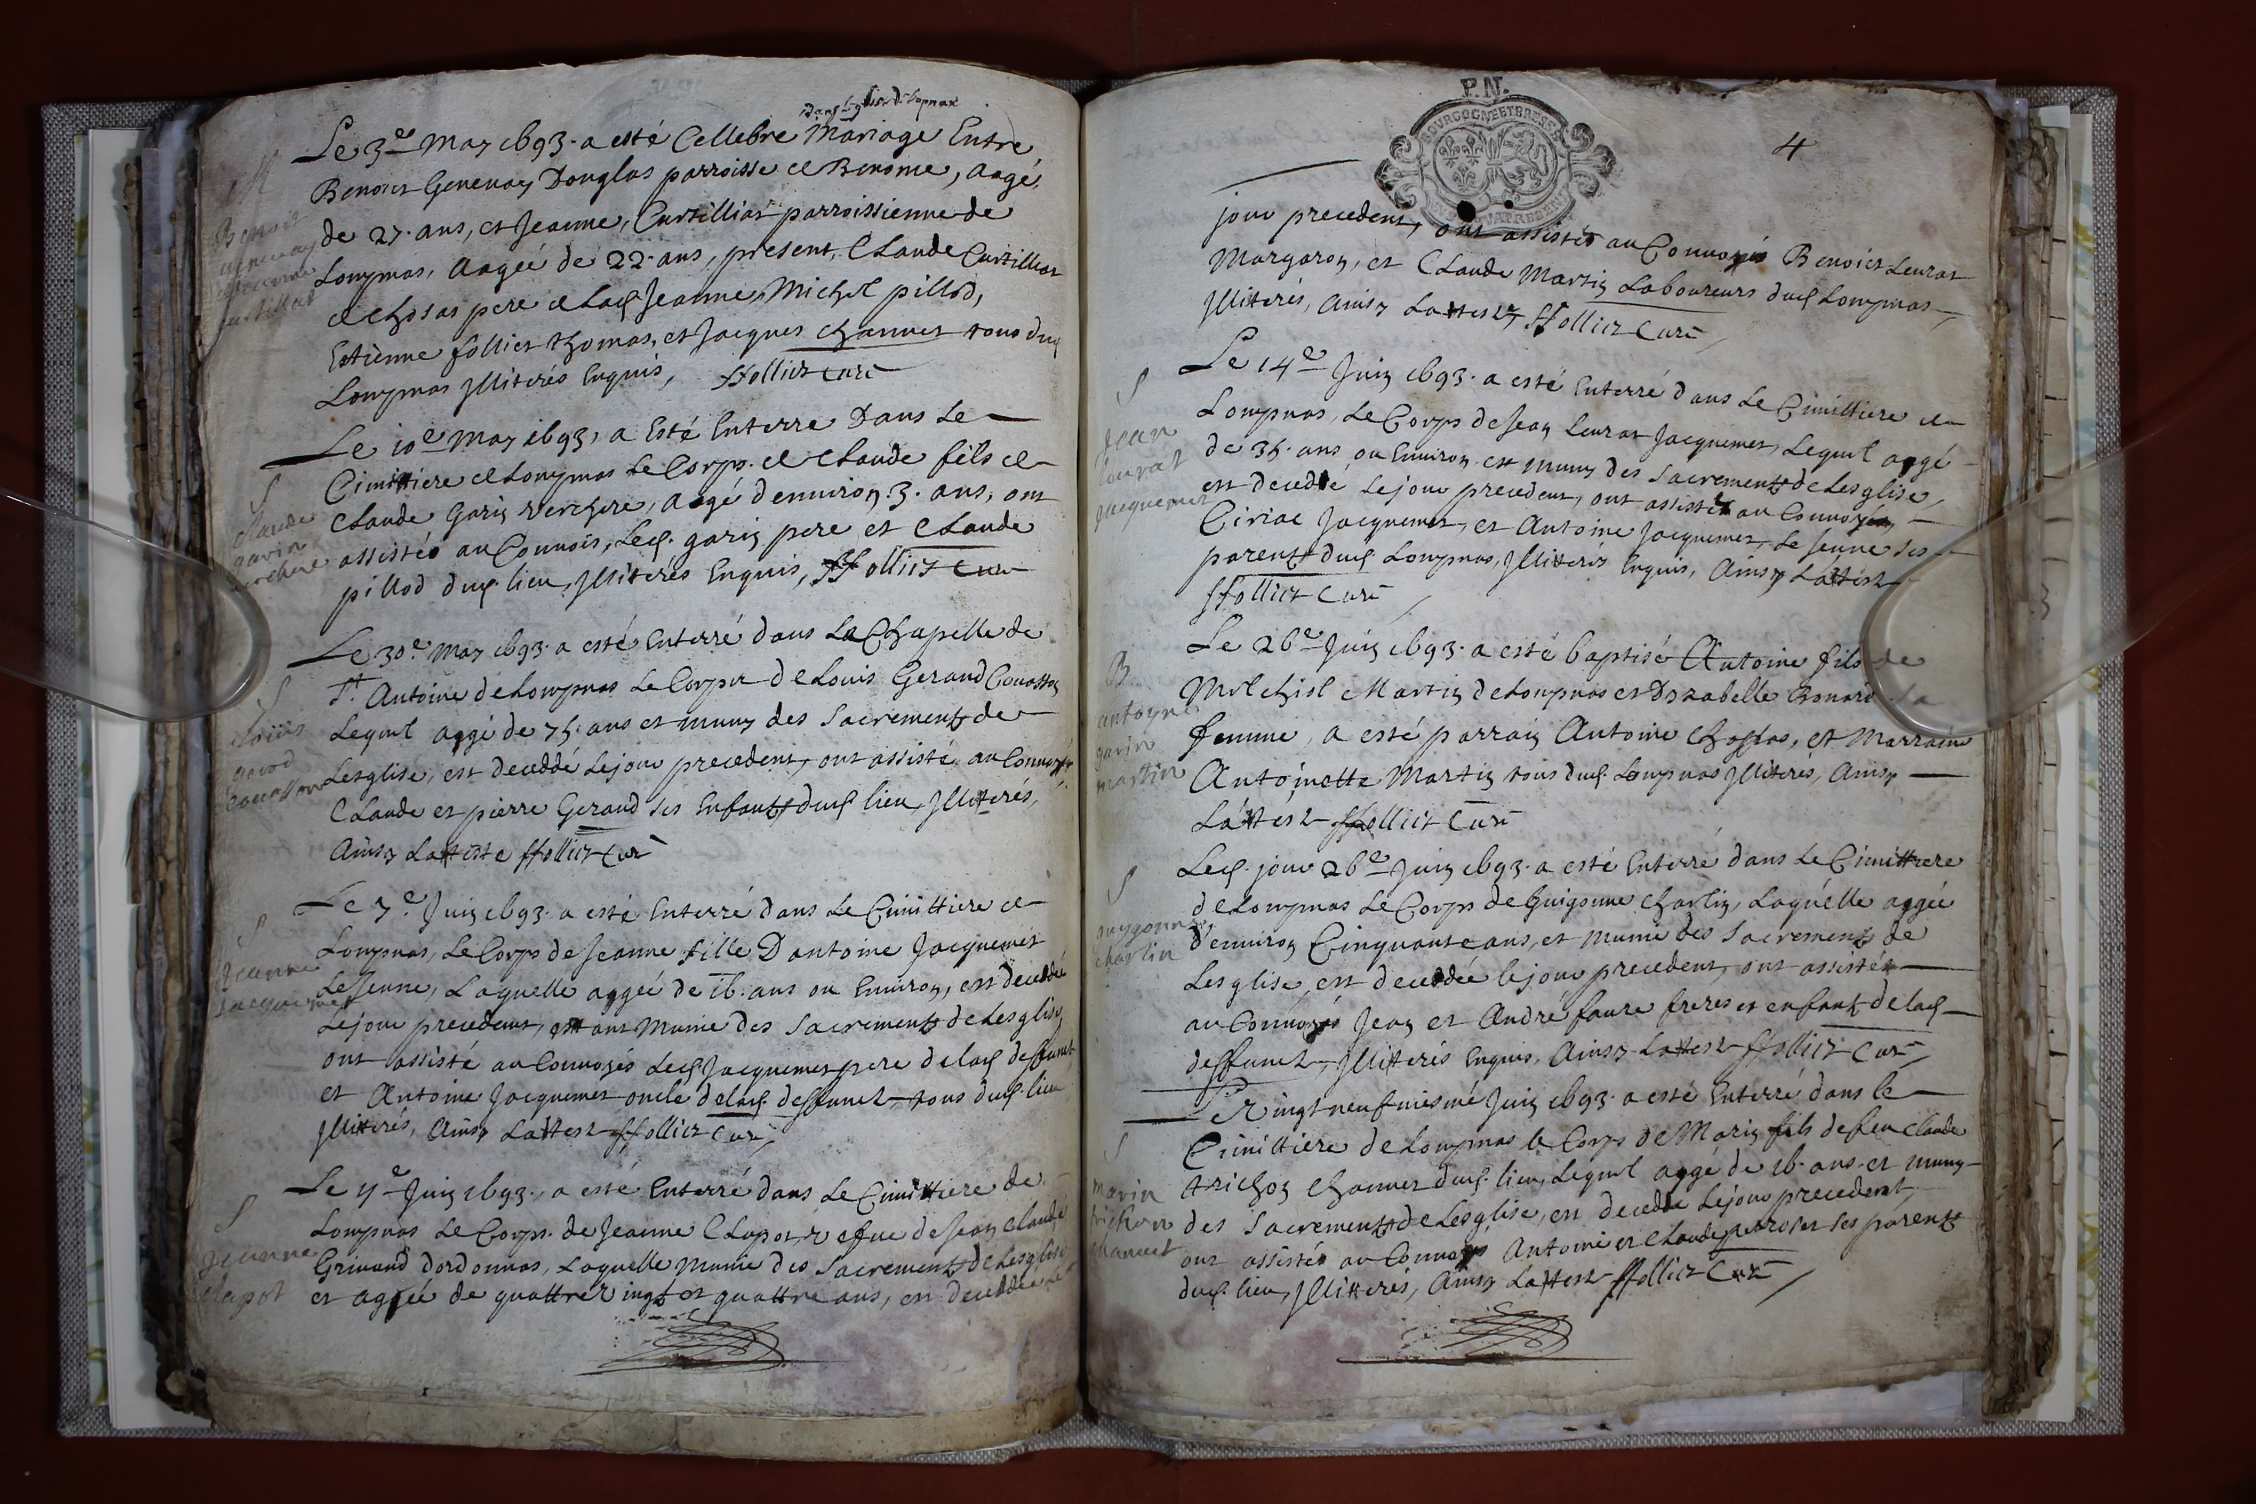 Dans l'eglise de Lopnas
Le 3e May 1693. a esté Cellebre Mariage Entre
Benoict Genevay Douglas parroisse de Benome, Aagé
de 27. ans, et Jeanne, Curtilliat parroissienne de
Lompnas, Aagée de 22. ans, present, Claude Curtilliat
de Chosas pere de lad. Jeanne, Michel pillod,
Estienne follict thomas, et Jacques Channet tous dud.
Lompnas Illiterés Enquis, ffollict Curé
M
Benoit
genevay
et jeanne
curtillat
Le 10e May 1693, a Esté Enterre Dans Le
Cimittiere de Lompnas Le Corps de Claude fils de
Claude Garin verchere, Aagé denviron 3. ans, ont
assistés au Convois, Led. garin pere et Claude
pillod dud. lieu, Illiterés Enquis, ffollict Curé
S
claude
garin
verchere
Le 30e May 1693. a esté Enterré dans La Chapelle de
St Antoine de Lompnas Le Corps de Louis Gerand
Lequel aagé de 75. ans et muny des Sacrements de
Lesglise, est decedé Le jour precedent, ont assisté au Convoyé
Claude et pierre Gerand ses Enfants dud. lieu Illiterés,
Ainsy Latteste ffollict Curé
S
Louis
Le 7e Juin 1693. a esté Enterré dans Le Cimittiere de
Lompnas, Le Corps de Jeanne fille Dantoine Jacquemet
Le Jeune, Laquelle aagée de 16. ans ou Environ, est decedée
Le jour precedent, estant Munie des Sacrements de Lesglise,
ont assisté au Convoyés Led. Jacquemet pere de lad. deffuncte
et Antoine Jacquemet oncle de lad. deffuncte, tous dud. lieu
Illitterés, Ainsy Latteste ffollict Curé
S
Jeanne
jacquemet
Le 11e Juin 1693., a esté Enterré dans Le Cimittiere de
Lompnas Le Corps de Jeanne Clapot, vefve de Jean Claude
Grinand dordonnas, Laquelle Munie des Sacrements de Lesglise
et agée de quattre vingt et quattre ans, est decedée le
S
jeanne
clapot
P.N.
BOURGOGNE ET BRESSE
4
jour precedent, ont assistés au Convoyés Benoict Leurat
Margaron, et Claude Martin Laboureurs dud. Lompnas,
Illitterés, Ainsy Latteste, ffollict Curé
Le 14e Juin 1693. a esté Enterré dans Le Cimittiere de
Lompnas, Le Corps de Jean Leurat Jacquemet, Lequel aagé
de 35. ans ou Environ et muny des Sacrements de Lesglise,
est decedé Le jour precedent, ont assistés au Convoyés,
Ciriac Jacquemet, et Antoine Jacquemet, Le Jeune ses
parents dud. Lompnas, Illitterés Enquis, Ainsy Latteste
ffollict Curé
S
Jean
Leurat
jacquemet
Le 26e Juin 1693. a esté baptisé Antoine fils de
Melchiol Martin de Lompnas et Dyzabelle Bonard sa
femme, a esté parrain Antoine Choglas, et Marraine
Antoinette Martin tous dud. Lompnas Illiterés, Ainsy
Latteste ffollict Curé
B
antoyne
garin
martin
Led. jour 26e Juin 1693. a esté Enterré dans Le Cimittiere
de Lompnas Le Corps de Guigonne Charlin, Laquelle aagée
d'environ Cinquante ans, et munie des Sacrements de
Lesglise, est decedée le jour precedent, ont assistés
au Convoyés Jean et André faure freres et enfants de lad.
deffuncte, Illitterés Enquis, Ainsy Latteste ffollict Curé,
S
guygonne
charlin
Le vingt neufviesme Juin 1693. a esté Enterré dans le
Cimittiere de Lompnas le Corps de Marin fils de feu Claude
trichon Channet dud. lieu, Lequel aagé de 16. ans et muny
des Sacrements de Lesglise, est decedé Le jour precedent,
ont assistés au Convoys Antoine et Claude ses parents
dud. lieu, Illitterés, Ainsy Latteste ffollict Curé
S
marin
trichon
channet